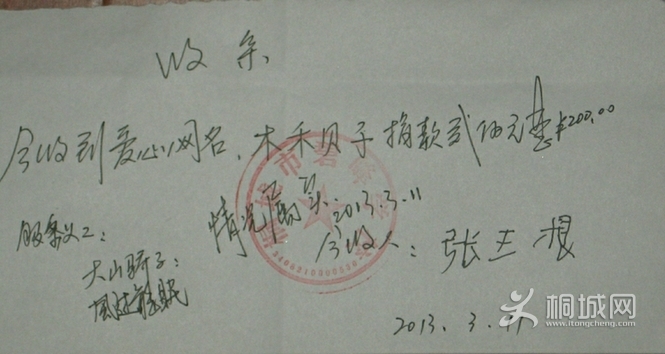 收条
今收到爱心网名,木禾贝子捐款贰佰元整¥200.00
情况属实.
2013.3.11
服务义工:
大山骄子;
今收人:张玉根
2013.3.11
桐城网
www.itongcheng.com